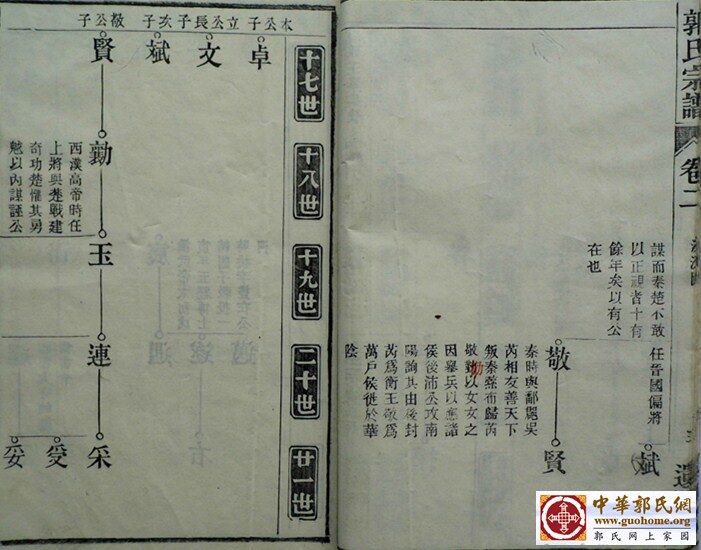 郭氏宗譜
卷二
謀而秦楚不敢
以正視者十有
餘年矣以有公
在也
任晉國偏將
斌
敬
賢
秦時與鄱
吳
芮相友善天下
叛秦
布歸芮
敬
勸
以女女之
因舉兵以應諸
侯後沛公攻南
陽詢其由後封
芮爲衡王敬爲
萬戶侯徙於華
陰
十七世
十八世
十九世
二十世
廿一世
木公子
卓
立公長子
文
次子
斌
敬公子
賢
勤
西漢高帝時任
上將與楚戰建
奇功楚懼其勇
以內謀誣公
玉
連
采
受
中華郭氏網
www.guohome.org
郭氏網上家園